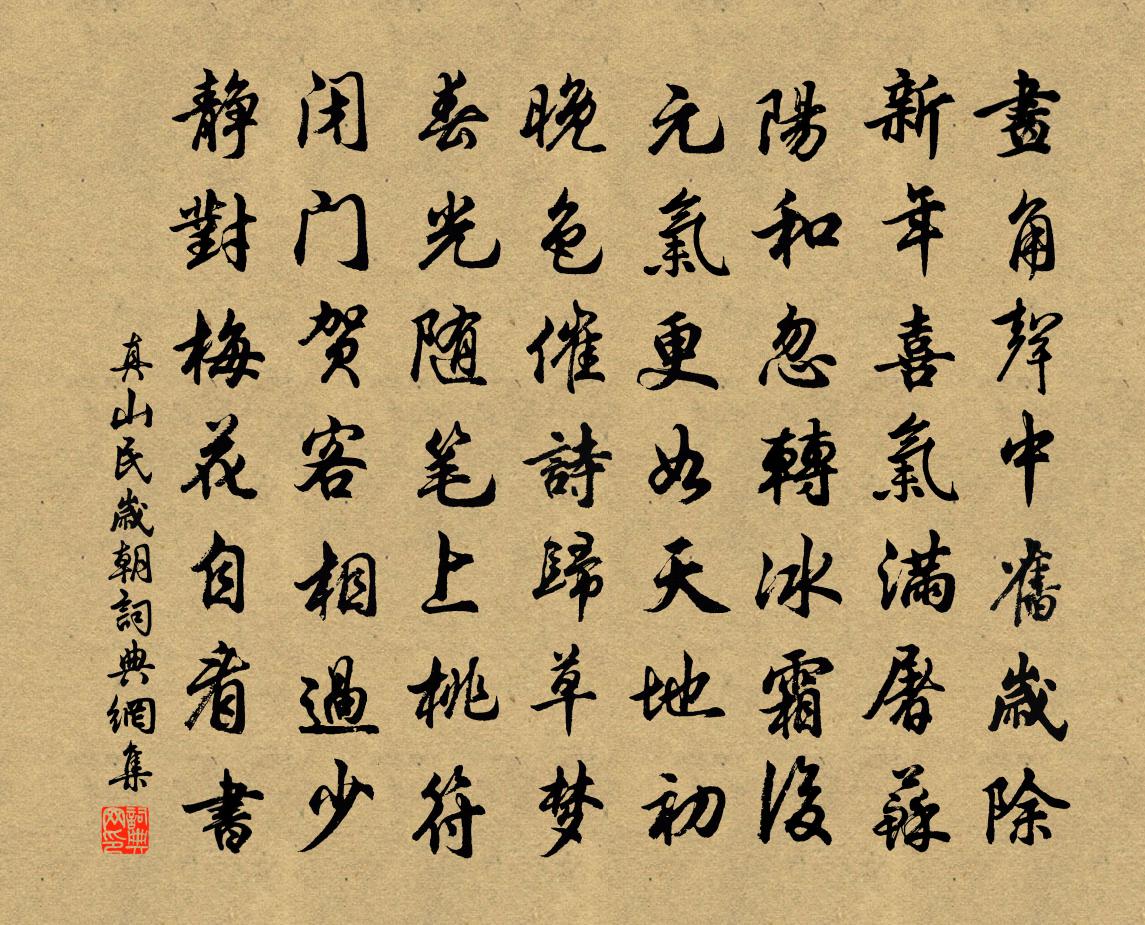 畫角聲中舊歲除
新年喜氣滿屠蘇
陽和忽轉冰霜後
元氣更如天地初
晚色催詩歸草梦
春光随笔上桃符
闭门贺客相過少
靜對梅花自看書
真山民歲朝詞典網集
詞典
网印